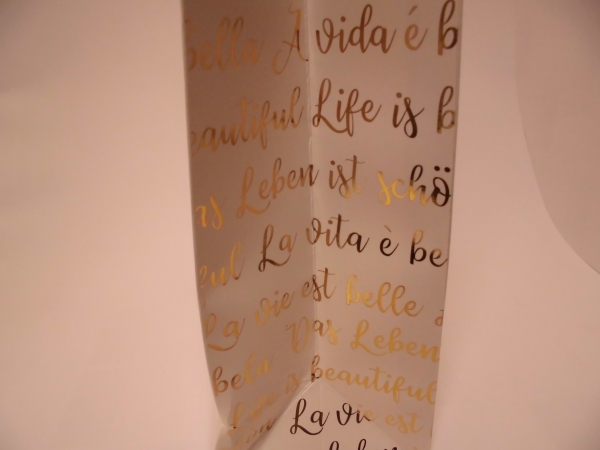 bella A vida é b
eautiful Life is b
as Leben ist schö
ful La vita è be
La vie est belle
bela Das Leben
Life is beautiful
La vie est